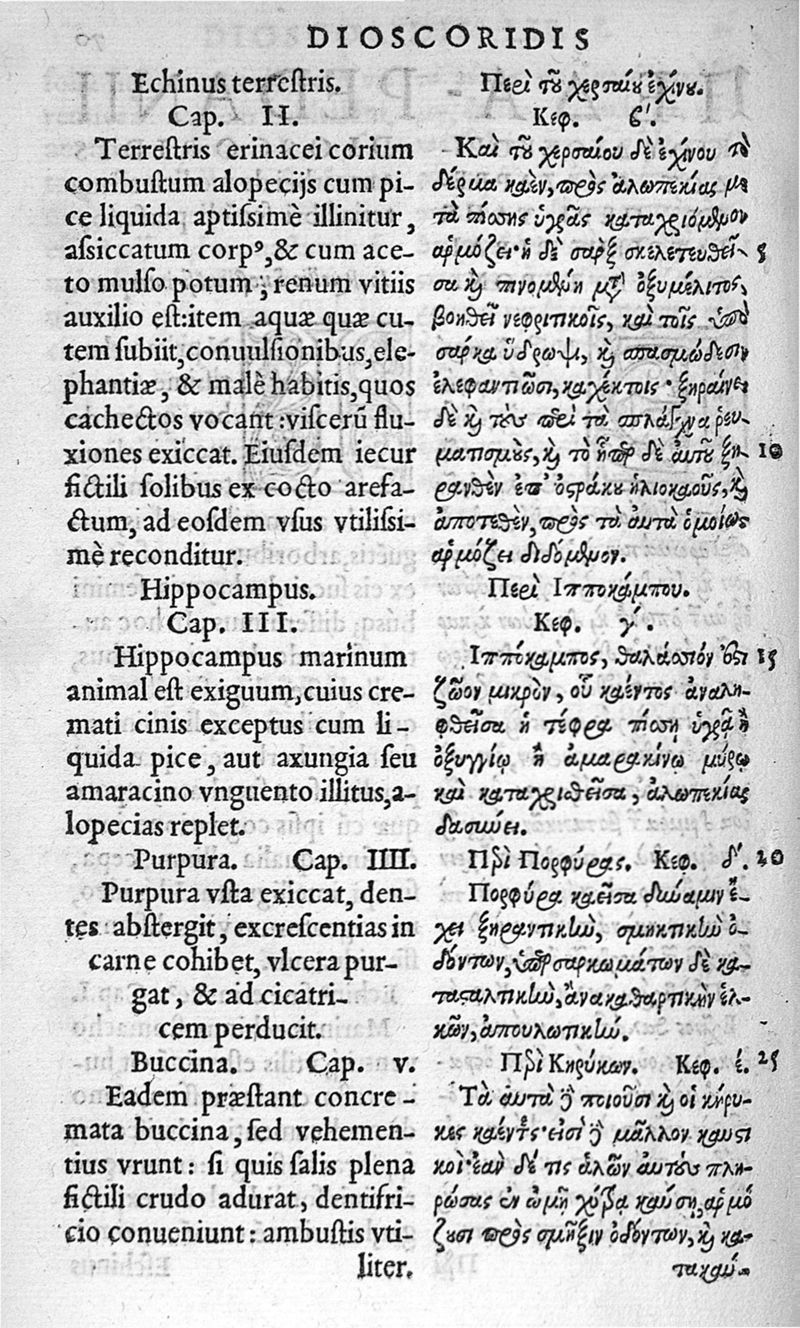 DIOSCORIDIS
Echinus terreſtris.
Cap. II.
Terreſtris erinacei corium
combuſtum alopecijs cum pi-
ce liquida aptiſsimè illinitur,
aſsiccatum corpꝰ, & cum ace-
to mulſo potum, renum vitiis
auxilio eſt: item aquæ quæ cu-
tem ſubiit, conuulſionibus, ele-
phantiæ, & malè habitis, quos
cachectos vocant: viſcerū flu-
xiones exiccat. Eiuſdem iecur
fictili ſolibus ex cocto arefa-
ctum, ad eoſdem vſus vtiliſsi-
mè reconditur.
Hippocampus.
Cap. III.
Hippocampus marinum
animal eſt exiguum, cuius cre-
mati cinis exceptus cum li-
quida pice, aut axungia ſeu
amaracino vnguento illitus, a-
lopecias replet.
Purpura. Cap. IIII.
Purpura vſta exiccat, den-
tes abſtergit, excreſcentias in
carne cohibet, vlcera pur-
gat, & ad cicatri-
cem perducit.
Buccina. Cap. v.
Eadem præſtant concre-
mata buccina, ſed vehemen-
tius vrunt: ſi quis ſalis plena
fictili crudo adurat, dentifri-
cio conueniunt: ambuſtis vti-
liter.
Περὶ τοῦ χερσαίου ἐχίνου.
Κεφ. ϐʹ.
Καὶ τοῦ χερσαίου δὲ ἐχίνου τὸ
δέρμα καὲν, πρὸς ἀλωπεκίας με
τὰ πίσσης ὑγρᾶς καταχριόμενον
ἁρμόζει· ἡ δὲ σαρξ σκελετευθεῖ-
σα καὶ πινομένη μετ' ὀξυμέλιτος,
βοηθεῖ νεφριτικοῖς, καὶ τοῖς ὑπὸ
σάρκα ὕδρωψι, καὶ σπασμώδεσιν
ἐλεφαντιῶσι, καχέκτοις· ξηραίνει
δὲ καὶ τοὺς περὶ τὰ σπλάγχνα ῥευ-
ματισμοὺς, καὶ τὸ ἧπαρ δὲ αὐτοῦ ξη-
ρανθὲν ἐπ' ὀστράκου ἡλιοκαοῦς, καὶ
ἀποτεθὲν, πρὸς τὰ αὐτὰ ὁμοίως
ἁρμόζει διδόμενον.
Περὶ Ἱπποκάμπου.
Κεφ. γʹ.
Ἱππόκαμπος, θαλάσσιόν ἐστι
ζῶον μικρὸν, οὗ καέντος ἀναλη-
φθεῖσα ἡ τέφρα πίσσῃ ὑγρᾷ ἢ
ὀξυγγίῳ ἢ ἀμαρακίνῳ μύρῳ
καὶ καταχρισθεῖσα, ἀλωπεκίας
δασύνει.
Περὶ Πορφύρας. Κεφ. δʹ.
Πορφύρα καεῖσα δύναμιν ἔ-
χει ξηραντικὴν, σμηκτικὴν ὀ-
δόντων, ὑπερσαρκωμάτων δὲ κα-
τασταλτικὴν, ἀνακαθαρτικὴν ἑλ-
κῶν, ἀπουλωτικὴν.
Περὶ Κηρύκων. Κεφ. έ.
Τὰ αὐτὰ δὲ ποιοῦσι καὶ οἱ κήρυ-
κες καέντες· εἰσὶ δὲ μᾶλλον καυστι
κοί· ἐὰν δέ τις ἁλῶν αὐτοὺς πλη-
ρώσας ἐν ὠμῇ χύτρα καύσῃ, ἁρμό
ζουσι πρὸς σμῆξιν ὀδόντων, καὶ κα-
τακαύ-
5
10
15
20
25